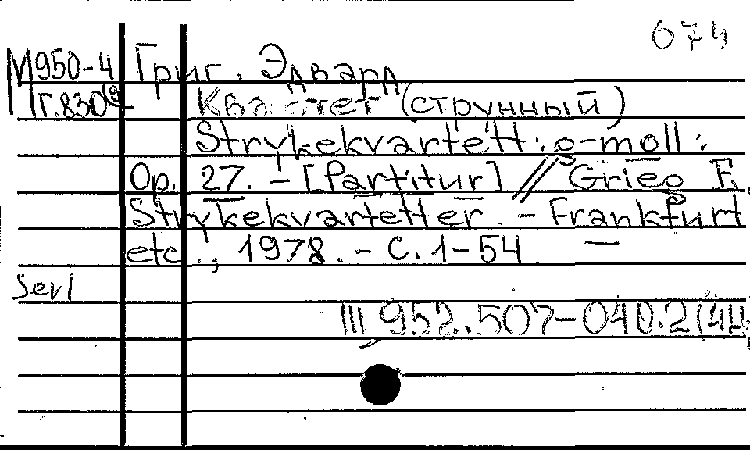 074
М950-4 Григ, Эдвард
Г.830 Квартет (струнный)
Strykekvartett: g-moll:
Op. 27. - [Partitur] // Grieg E.
Strykekvartetter. - Frankfurt
etc., 1978. - С. 1-54 —
III 952.507-040.2(4Ц